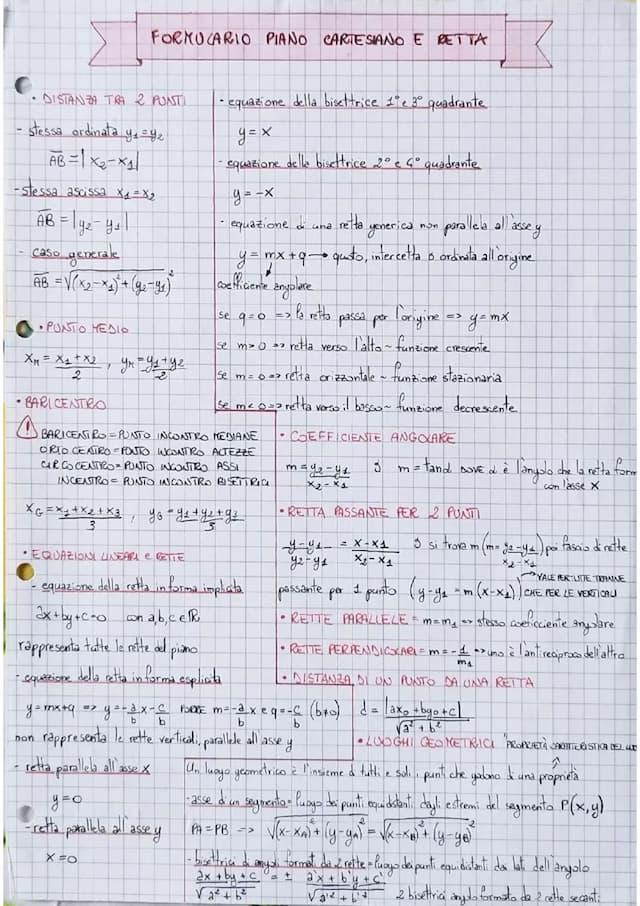 FORMULARIO PIANO CARTESIANO E RETTA
• DISTANZA TRA 2 PUNTI
- stessa ordinata y₁=y₂
AB = |x₂-x₁|
- stessa ascissa x₁=x₂
AB = |y₂-y₁|
- caso generale
AB = √(x₂-x₁)²+(y₂-y₁)²
• PUNTO MEDIO
xM = x₁+x₂/2 , yM = y₁+y₂/2
• BARICENTRO
! BARICENTRO = PUNTO INCONTRO MEDIANE
ORTOCENTRO = PUNTO INCONTRO ALTEZZE
CIRCOCENTRO = PUNTO INCONTRO ASSI
INCENTRO = PUNTO INCONTRO BISETTRICI
xG = x₁+x₂+x₃/3 , yG = y₁+y₂+y₃/3
• EQUAZIONI LINEARI e RETTE
- equazione della retta in forma implicita
ax+by+c=0 con a,b,c∈ℝ
rappresenta tutte le rette del piano
- equazione della retta in forma esplicita
y=mx+q => y=-a/b x - c/b PORRE m=-a/b x e q=-c/b (b≠0)
non rappresenta le rette verticali, parallele all'asse y
- retta parallela all'asse x
y=0
- retta parallela all'asse y
x=0
- equazione della bisettrice 1° e 3° quadrante
y=x
- equazione della bisettrice 2° e 4° quadrante
y=-x
- equazione di una retta generica non parallela all'asse y
y = mx+q → quoto, intercetta o ordinata all'origine
coefficiente angolare
se q=0 => la retta passa per l'origine => y=mx
se m>0 => retta verso l'alto ~ funzione crescente
se m=0 => retta orizzontale ~ funzione stazionaria
se m<0 => retta verso il basso ~ funzione decrescente
• COEFFICIENTE ANGOLARE
m = y₂-y₁/x₂-x₁ m = tanα DOVE α è l'angolo che la retta form
con l'asse x
• RETTA PASSANTE PER 2 PUNTI
y-y₁/y₂-y₁ = x-x₁/x₂-x₁ si trova m (m=y₂-y₁/x₂-x₁) poi fascio di rette
passante per 1 punto (y-y₁ = m(x-x₁)) → VALE PER TUTTE TRANNE CHE PER LE VERTICALI
• RETTE PARALLELE = m=m₁ => stesso coefficiente angolare
• RETTE PERPENDICOLARI = m=-1/m₁ => uno è l'antireciproco dell'altro
• DISTANZA DI UN PUNTO DA UNA RETTA
d = |ax₀+by₀+c|/√a²+b²
• LUOGHI GEOMETRICI PROPRIETÀ CARATTERISTICA DEL
Un luogo geometrico è l'insieme di tutti e soli i punti che godono di una proprietà
- asse di un segmento = luogo dei punti equidistanti dagli estremi del segmento P(x,y)
PA=PB -> √(x-xA)²+(y-yA)² = √(x-xB)²+(y-yB)²
- bisettrici di angoli formati da 2 rette = luogo dei punti equidistanti dai lati dell'angolo
ax+by+c/√a²+b² = ± a'x+b'y+c'/√a'²+b'² 2 bisettrici angolo formato da 2 rette secanti